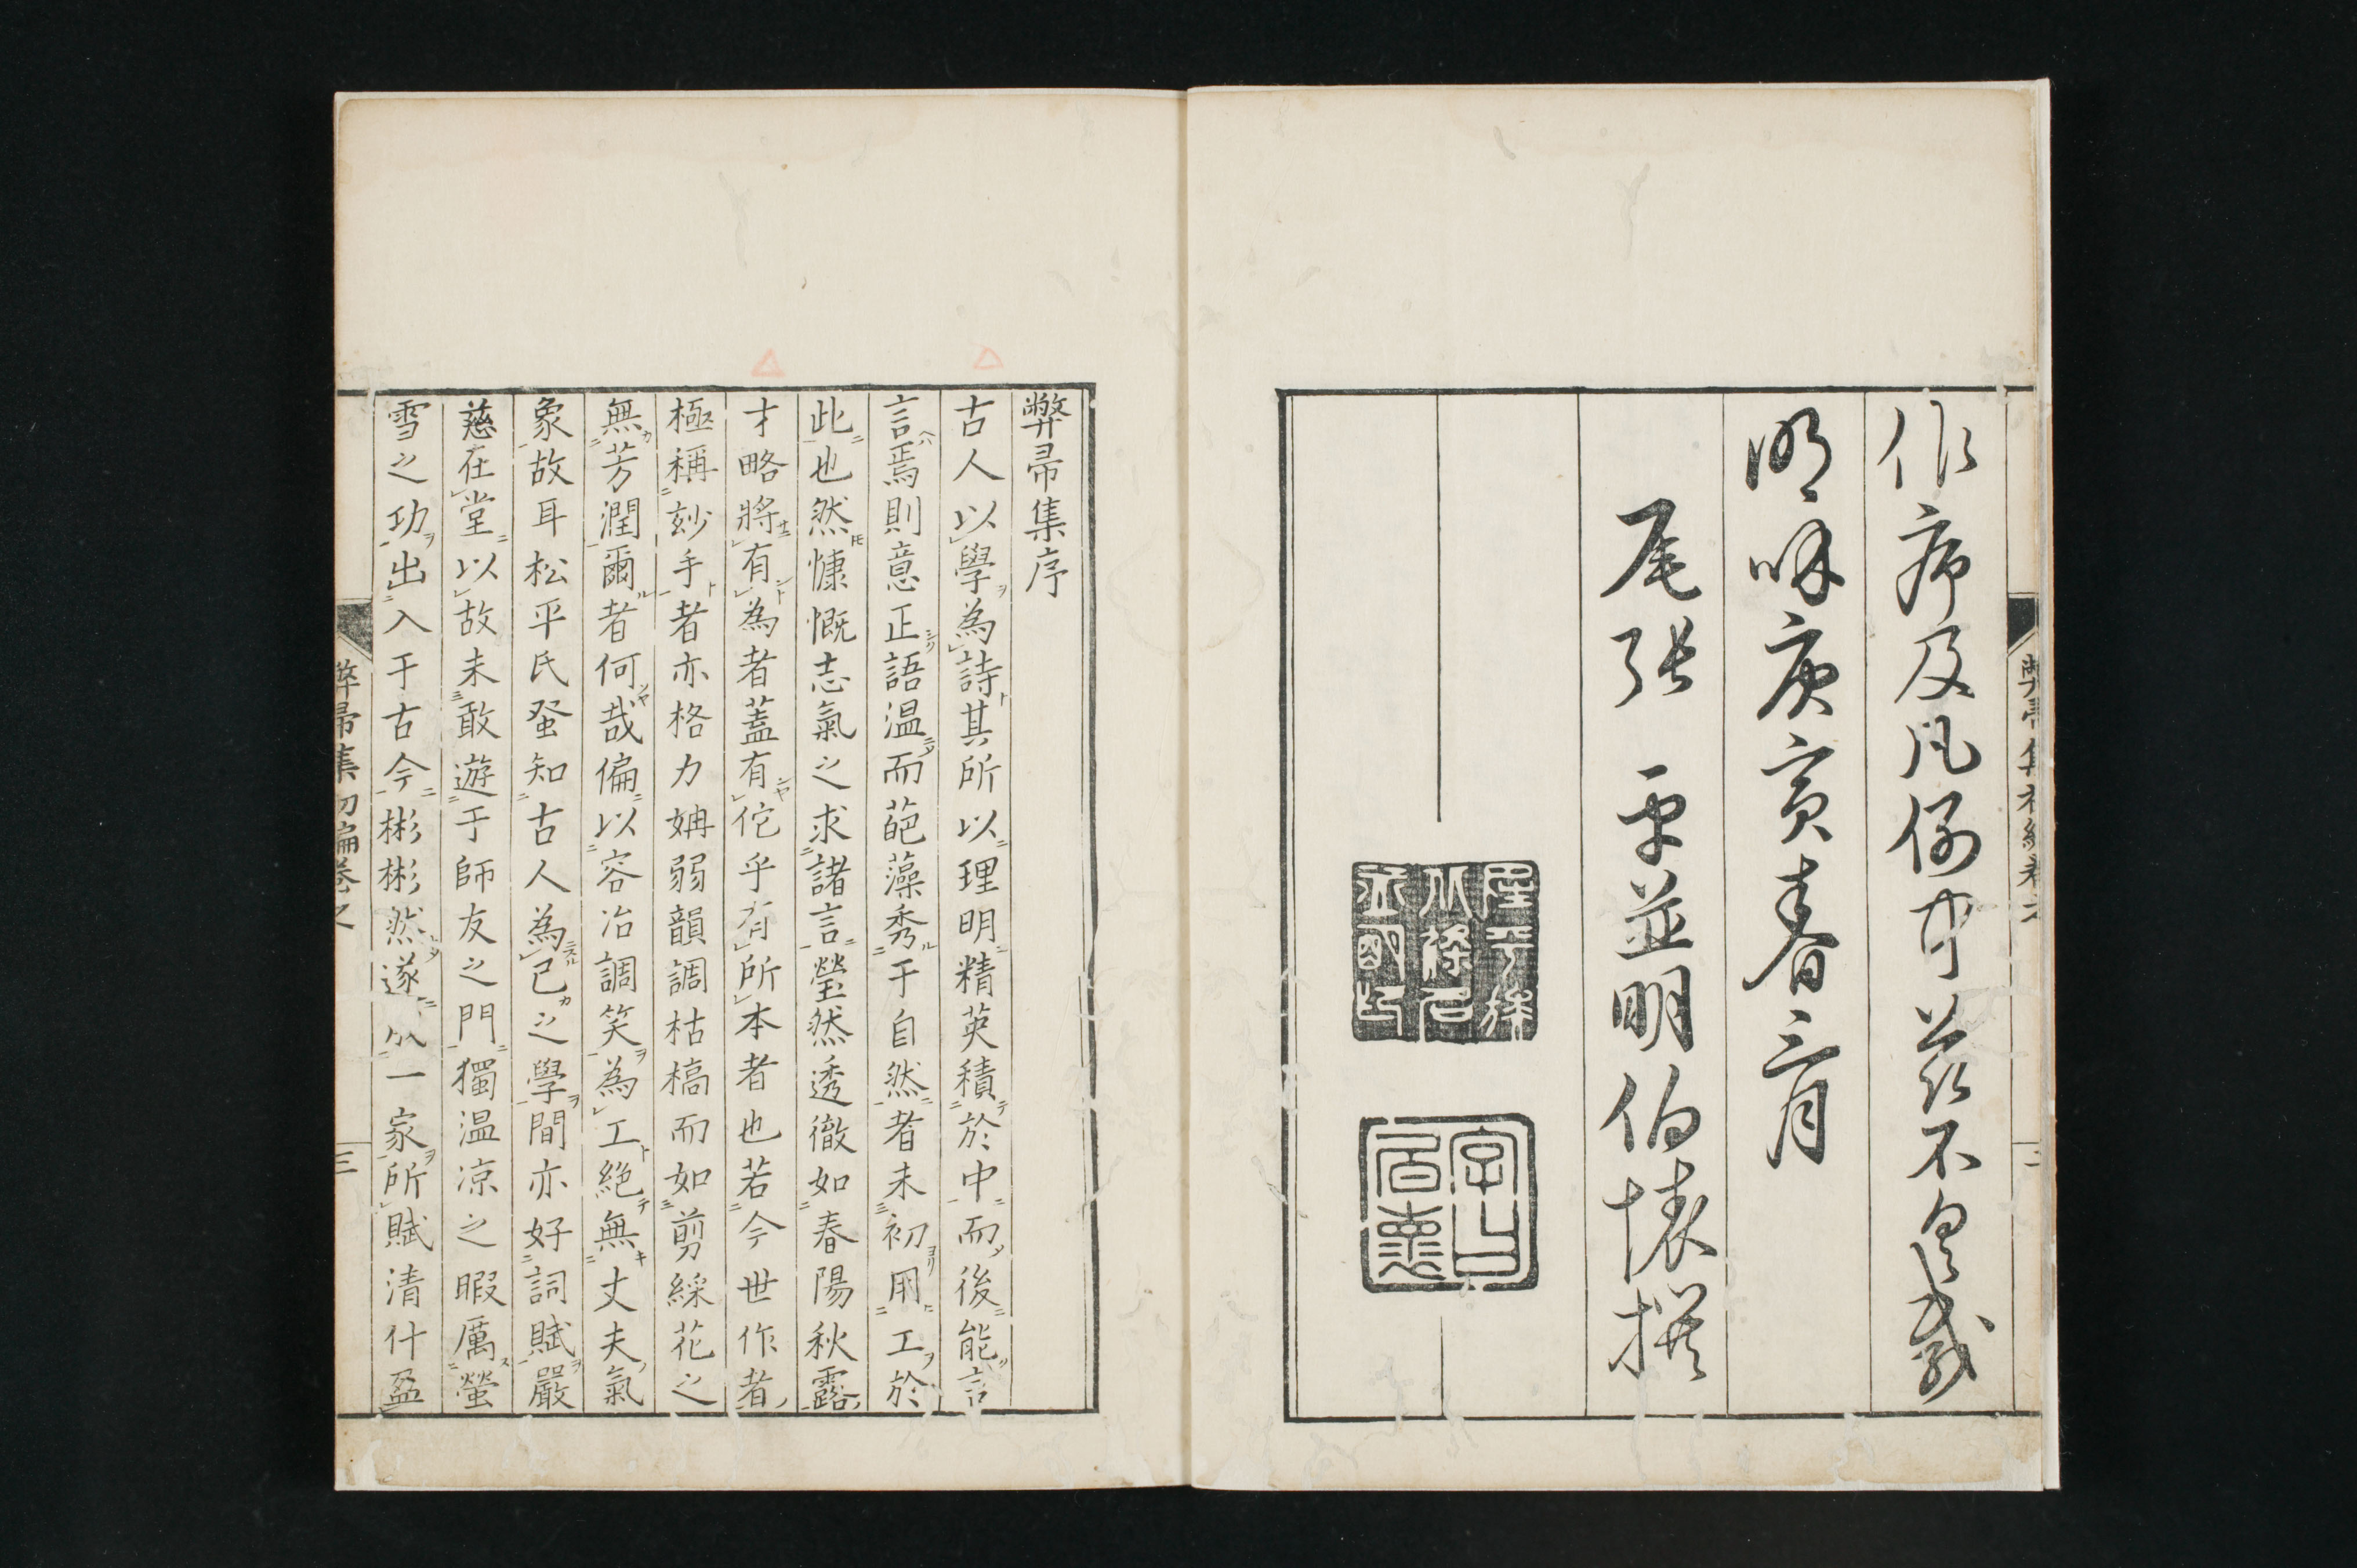 作序及凡例中茲不具載
明和庚寅春二月
尾張 平並明伯懷撰
弊帚集序
古人以學為詩其所以理明精英積於中而後能言
言焉則意正語溫而葩藻秀于自然者未初用工於
此也然慷慨志氣之求諸言瑩然透徹如春陽秋露
才略將有為者蓋有佗乎有所本者也若今世作者
極稱玅手者亦格力姌弱韻調枯槁而如剪綵花之
無芳潤爾者何哉偏以容冶調笑為工絕無丈夫氣
象故耳松平氏蚤知古人為己之學間亦好詞賦嚴
慈在堂以故未敢遊于師友之門獨溫凉之暇厲螢
雪之功出入于古今彬彬然遂以一家所賦清什盈
弊帚集初編卷之 三